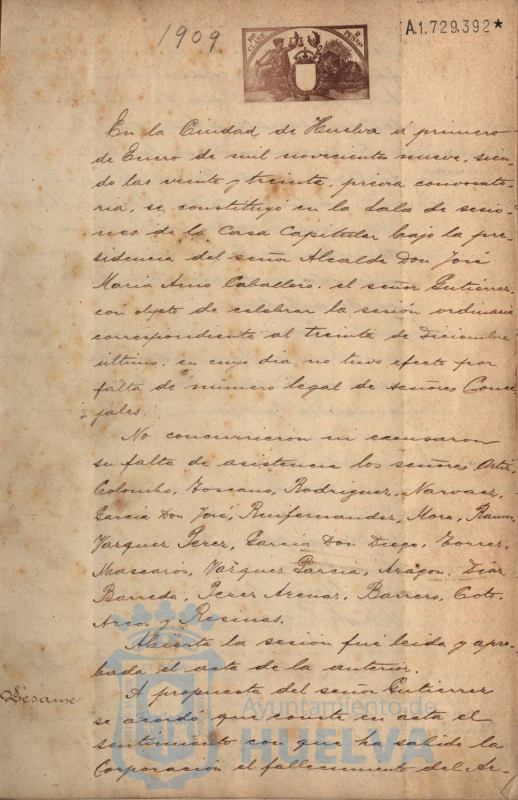 1909
10ª CLASE 2 PESETAS
A.1.729.392*
En la Ciudad de Huelva á primero
de Enero de mil novecientos nueve, sien-
do las veinte y treinta, previa convocato-
ria, se constituyó en la Sala de sesio-
nes de la Casa Capitular bajo la pre-
sidencia del señor Alcalde Don José
Maria Amo Caballero, el señor Gutierrez,
con objeto de celebrar la sesión ordinaria
correspondiente al treinta de Diciembre
último, en cuyo dia no tuvo efecto por
falta de número legal de señores Conce-
jales.
No concurrieron ni excusaron
su falta de asistencia los señores Ortiz,
Colombo, Toscano, Rodriguez, Narvaez,
Garcia Don José, Ruifernandez, Mora, Ramos,
Vazquez Perez, Garcia Don Diego, Torres,
Mascarós, Vazquez Garcia, Aragon, Diaz
Barreda, Perez Arenas, Barrero, Coto,
Arcos y Resinas.
Abierta la sesión fué leida y apro-
bada el acta de la anterior.
Pésame
A propuesta del señor Gutierrez
se acordó, que conste en acta el
sentimiento con que ha sabido la
Corporación el fallecimiento del Ar-
Ayuntamiento de
HUELVA